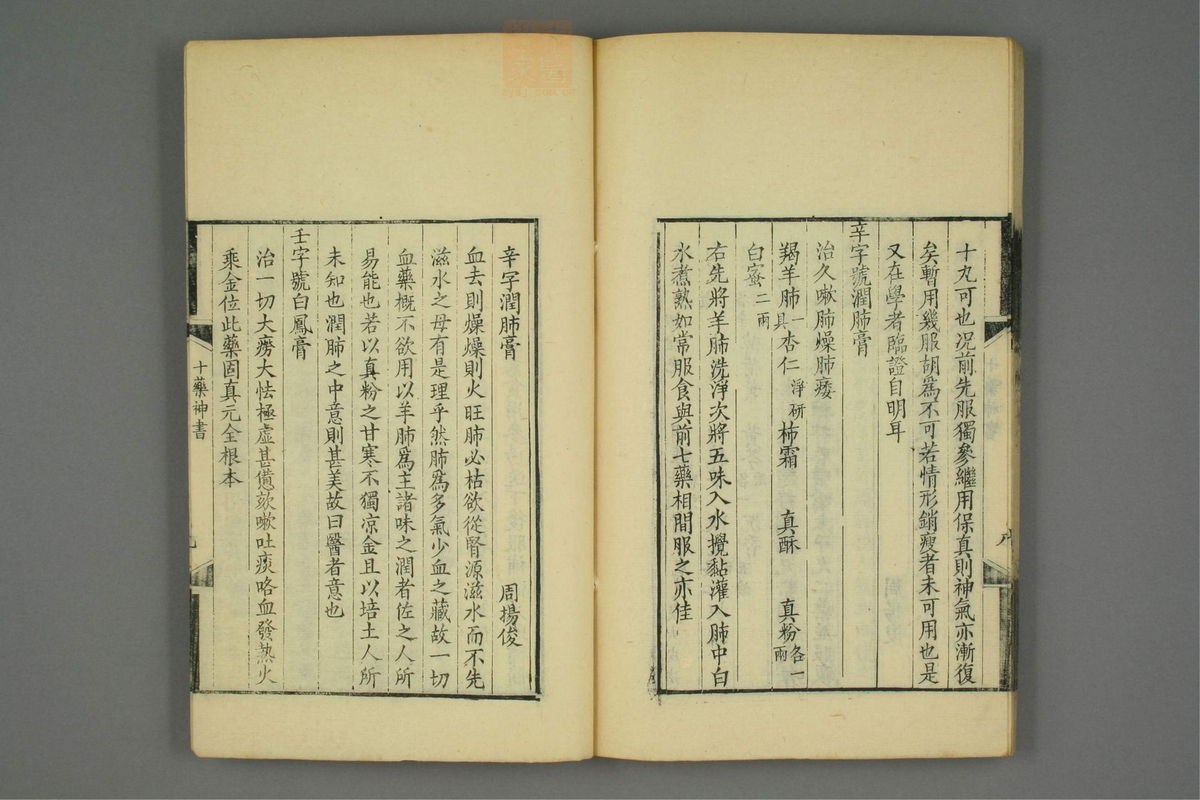 十九可也况前先服獨參繼用保真則神氣亦漸復
矣暫用幾服胡爲不可若情形銷瘦者未可用也是
又在學者臨證自明耳
辛字號潤肺膏
治久嗽肺燥肺痿
羯羊肺一具杏仁淨研柿霜 真酥 真粉各一兩
白蜜二兩
右先將羊肺洗淨次將五味入水攪黏灌入肺中白
水煮熟如常服食與前七藥相間服之亦佳
辛字潤肺膏 周揚俊
血去則燥燥則火旺肺必枯欲從腎源滋水而不先
滋水之母有是理乎然肺爲多氣少血之藏故一切
血藥概不欲用以羊肺爲主諸味之潤者佐之人所
易能也若以真粉之甘寒不獨凉金且以培土人所
未知也潤肺之中意則甚美故曰醫者意也
壬字號白鳳膏
治一切大癆大怯極虛甚憊欬嗽吐痰咯血發熱火
乘金位此藥固真元全根本
十藥神書